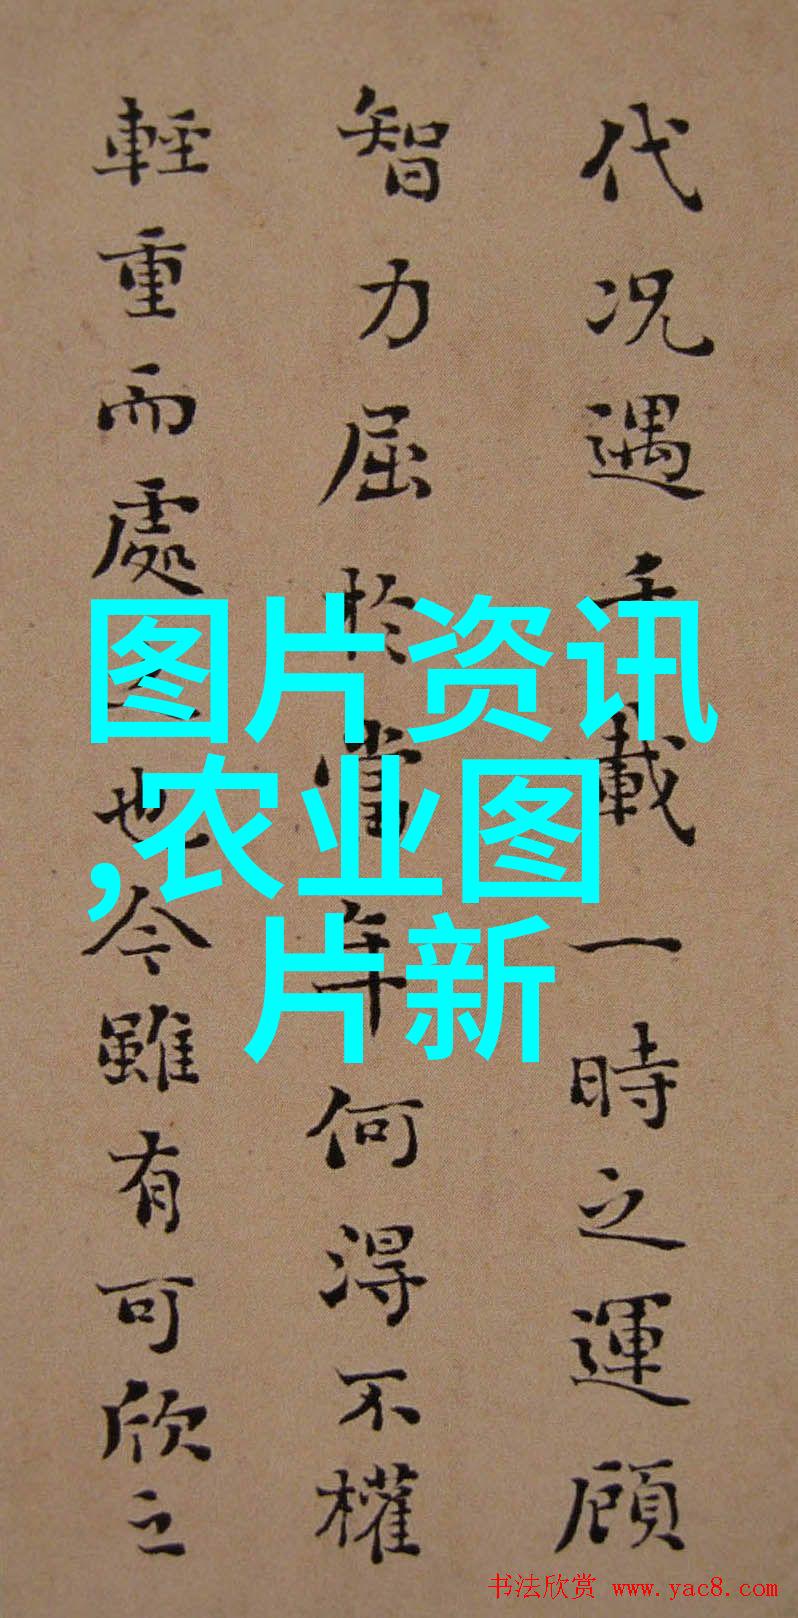 代况遇千載一時之運顧
智力屈於當年何得不權
輕重而處之也今雖有可欣之
图片资讯
,农业图
片新
书法欣赏 www.yac8.com